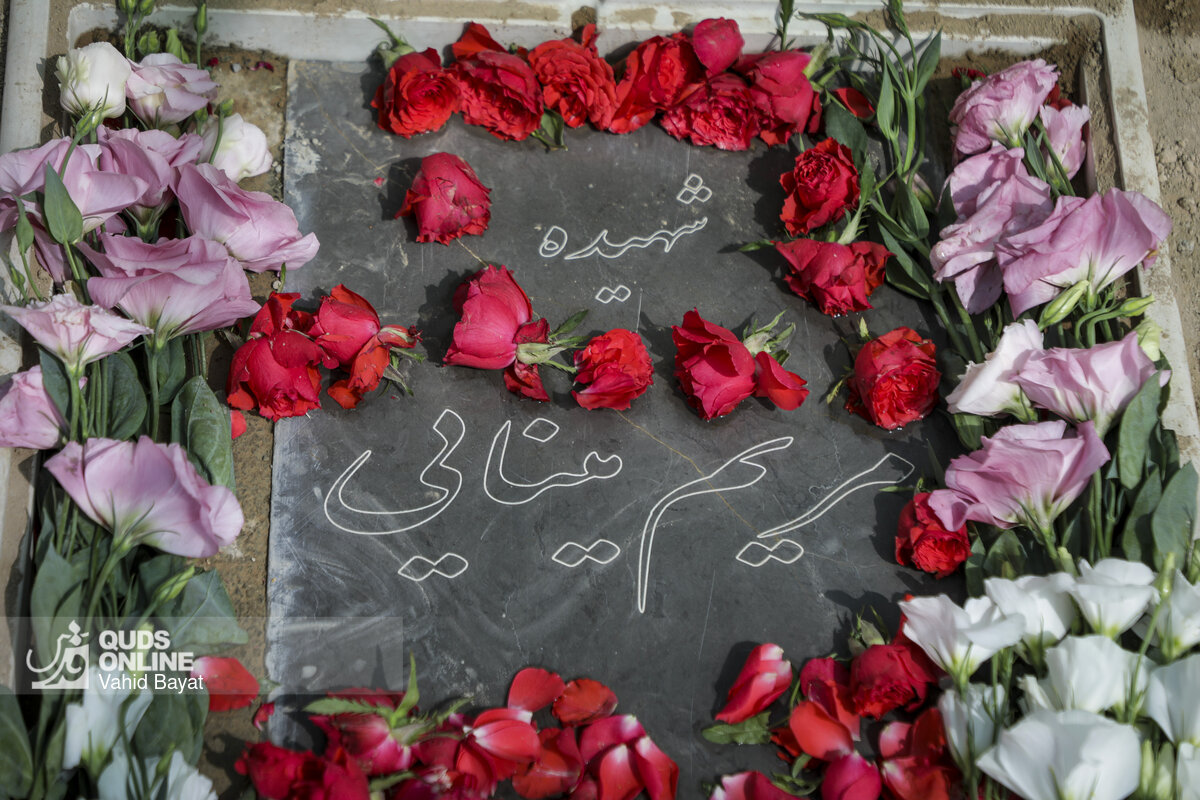 شهیده
ریم مینایی
QUDS
ONLINE
Vahid Bayat